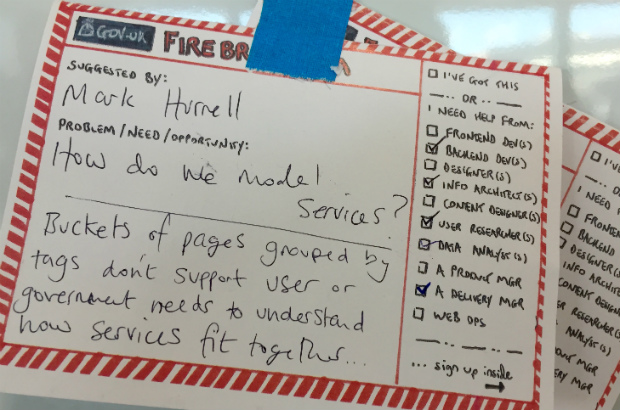 GOV.UK FIRE BR
SUGGESTED BY:
Mark Hurrell
PROBLEM/NEED/OPPORTUNITY:
How do we model
Services?
Buckets of pages grouped by
tags don't support user or
government needs to understand
how services fit together...
I'VE GOT THIS
OR
I NEED HELP FROM:
FRONTEND DEV(S)
BACKEND DEV(S)
DESIGNER(S)
INFO ARCHITECT(S)
CONTENT DESIGNER(S)
USER RESEARCHER(S)
DATA ANALYST(S)
A PRODUCT MGR
A DELIVERY MGR
WEB OPS
... sign up inside
I'V
I NEED
FRONTEN
BACKEND
DESIGNER(S)
INFO ARCHITE
CONTENT DESIGN
USER RESEARCHER(S
ANALYST(S)
PRODUCT MGR
DELIVERY MGR